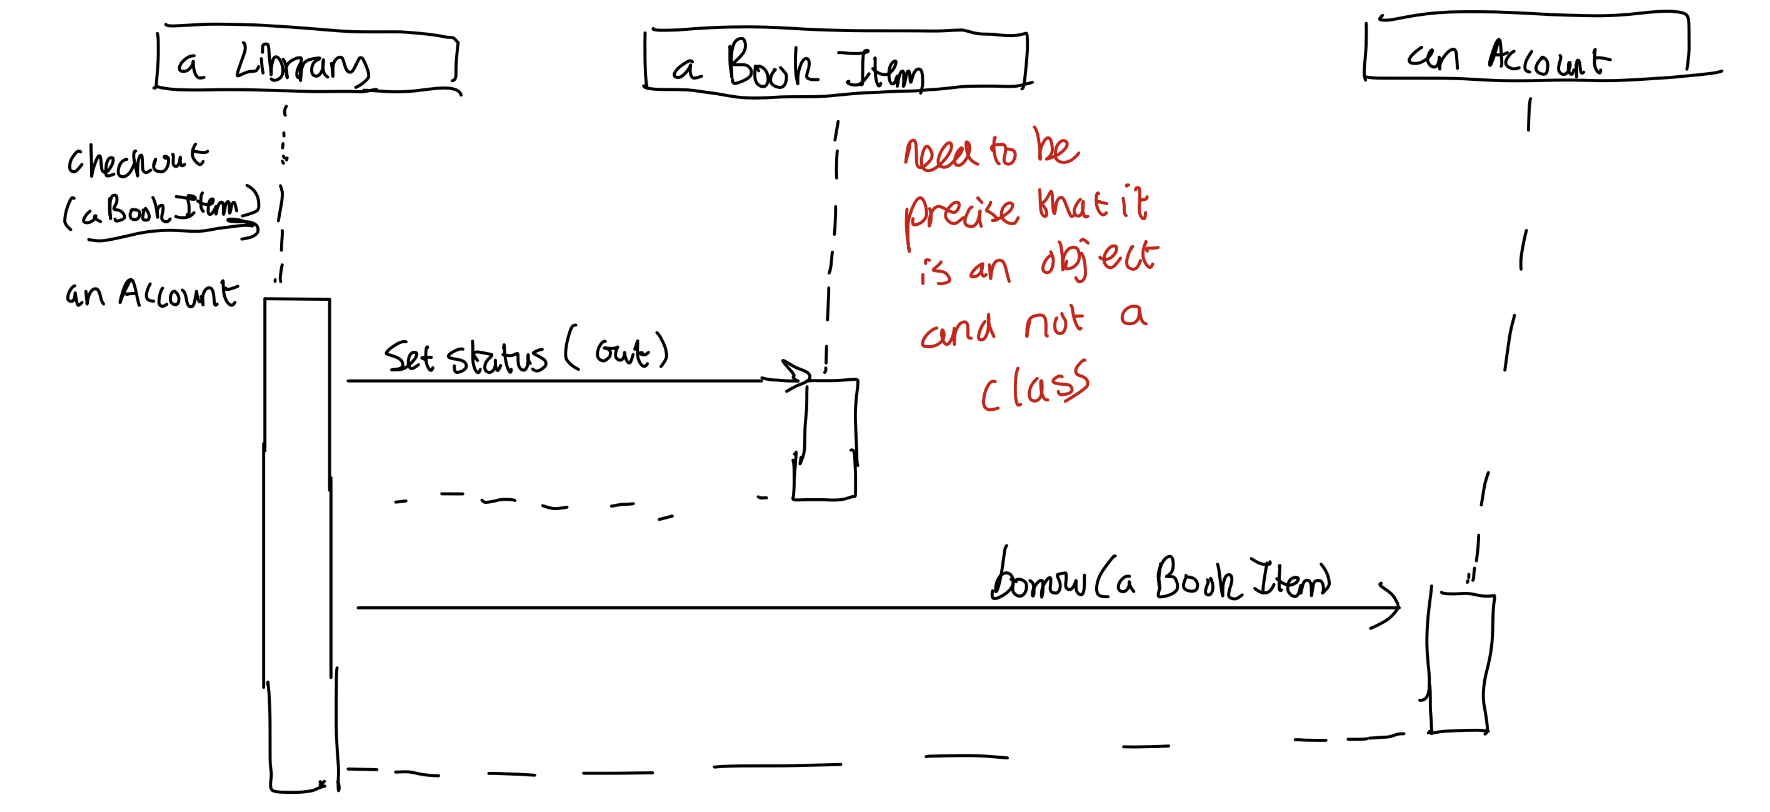 a Library
a Book Item
an Account
checkout
(a Book Item)
an Account
Set status (out)
need to be
precise that it
is an object
and not a
class
borrow (a Book Item)